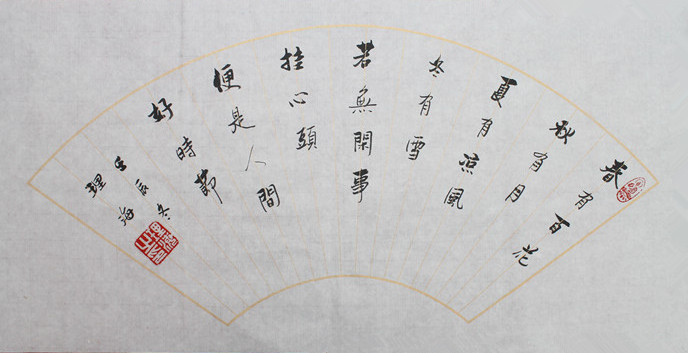 春有百花
秋有月
夏有凉風
冬有雪
若無閑事
挂心頭
便是人間
好時節
壬辰冬
理海